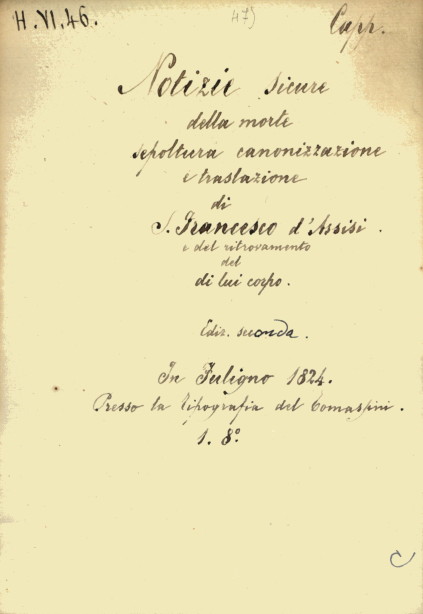 H.VI.46.
475
Capp.
Notizie sicure
della morte
sepoltura canonizzazione
e traslazione
di
S. Francesco d'Assisi.
e del ritrovamento
del
di lui corpo.
Ediz. seconda.
In Fuligno 1824.
Presso la Tipografia del Tomassini.
1. 8°.
C